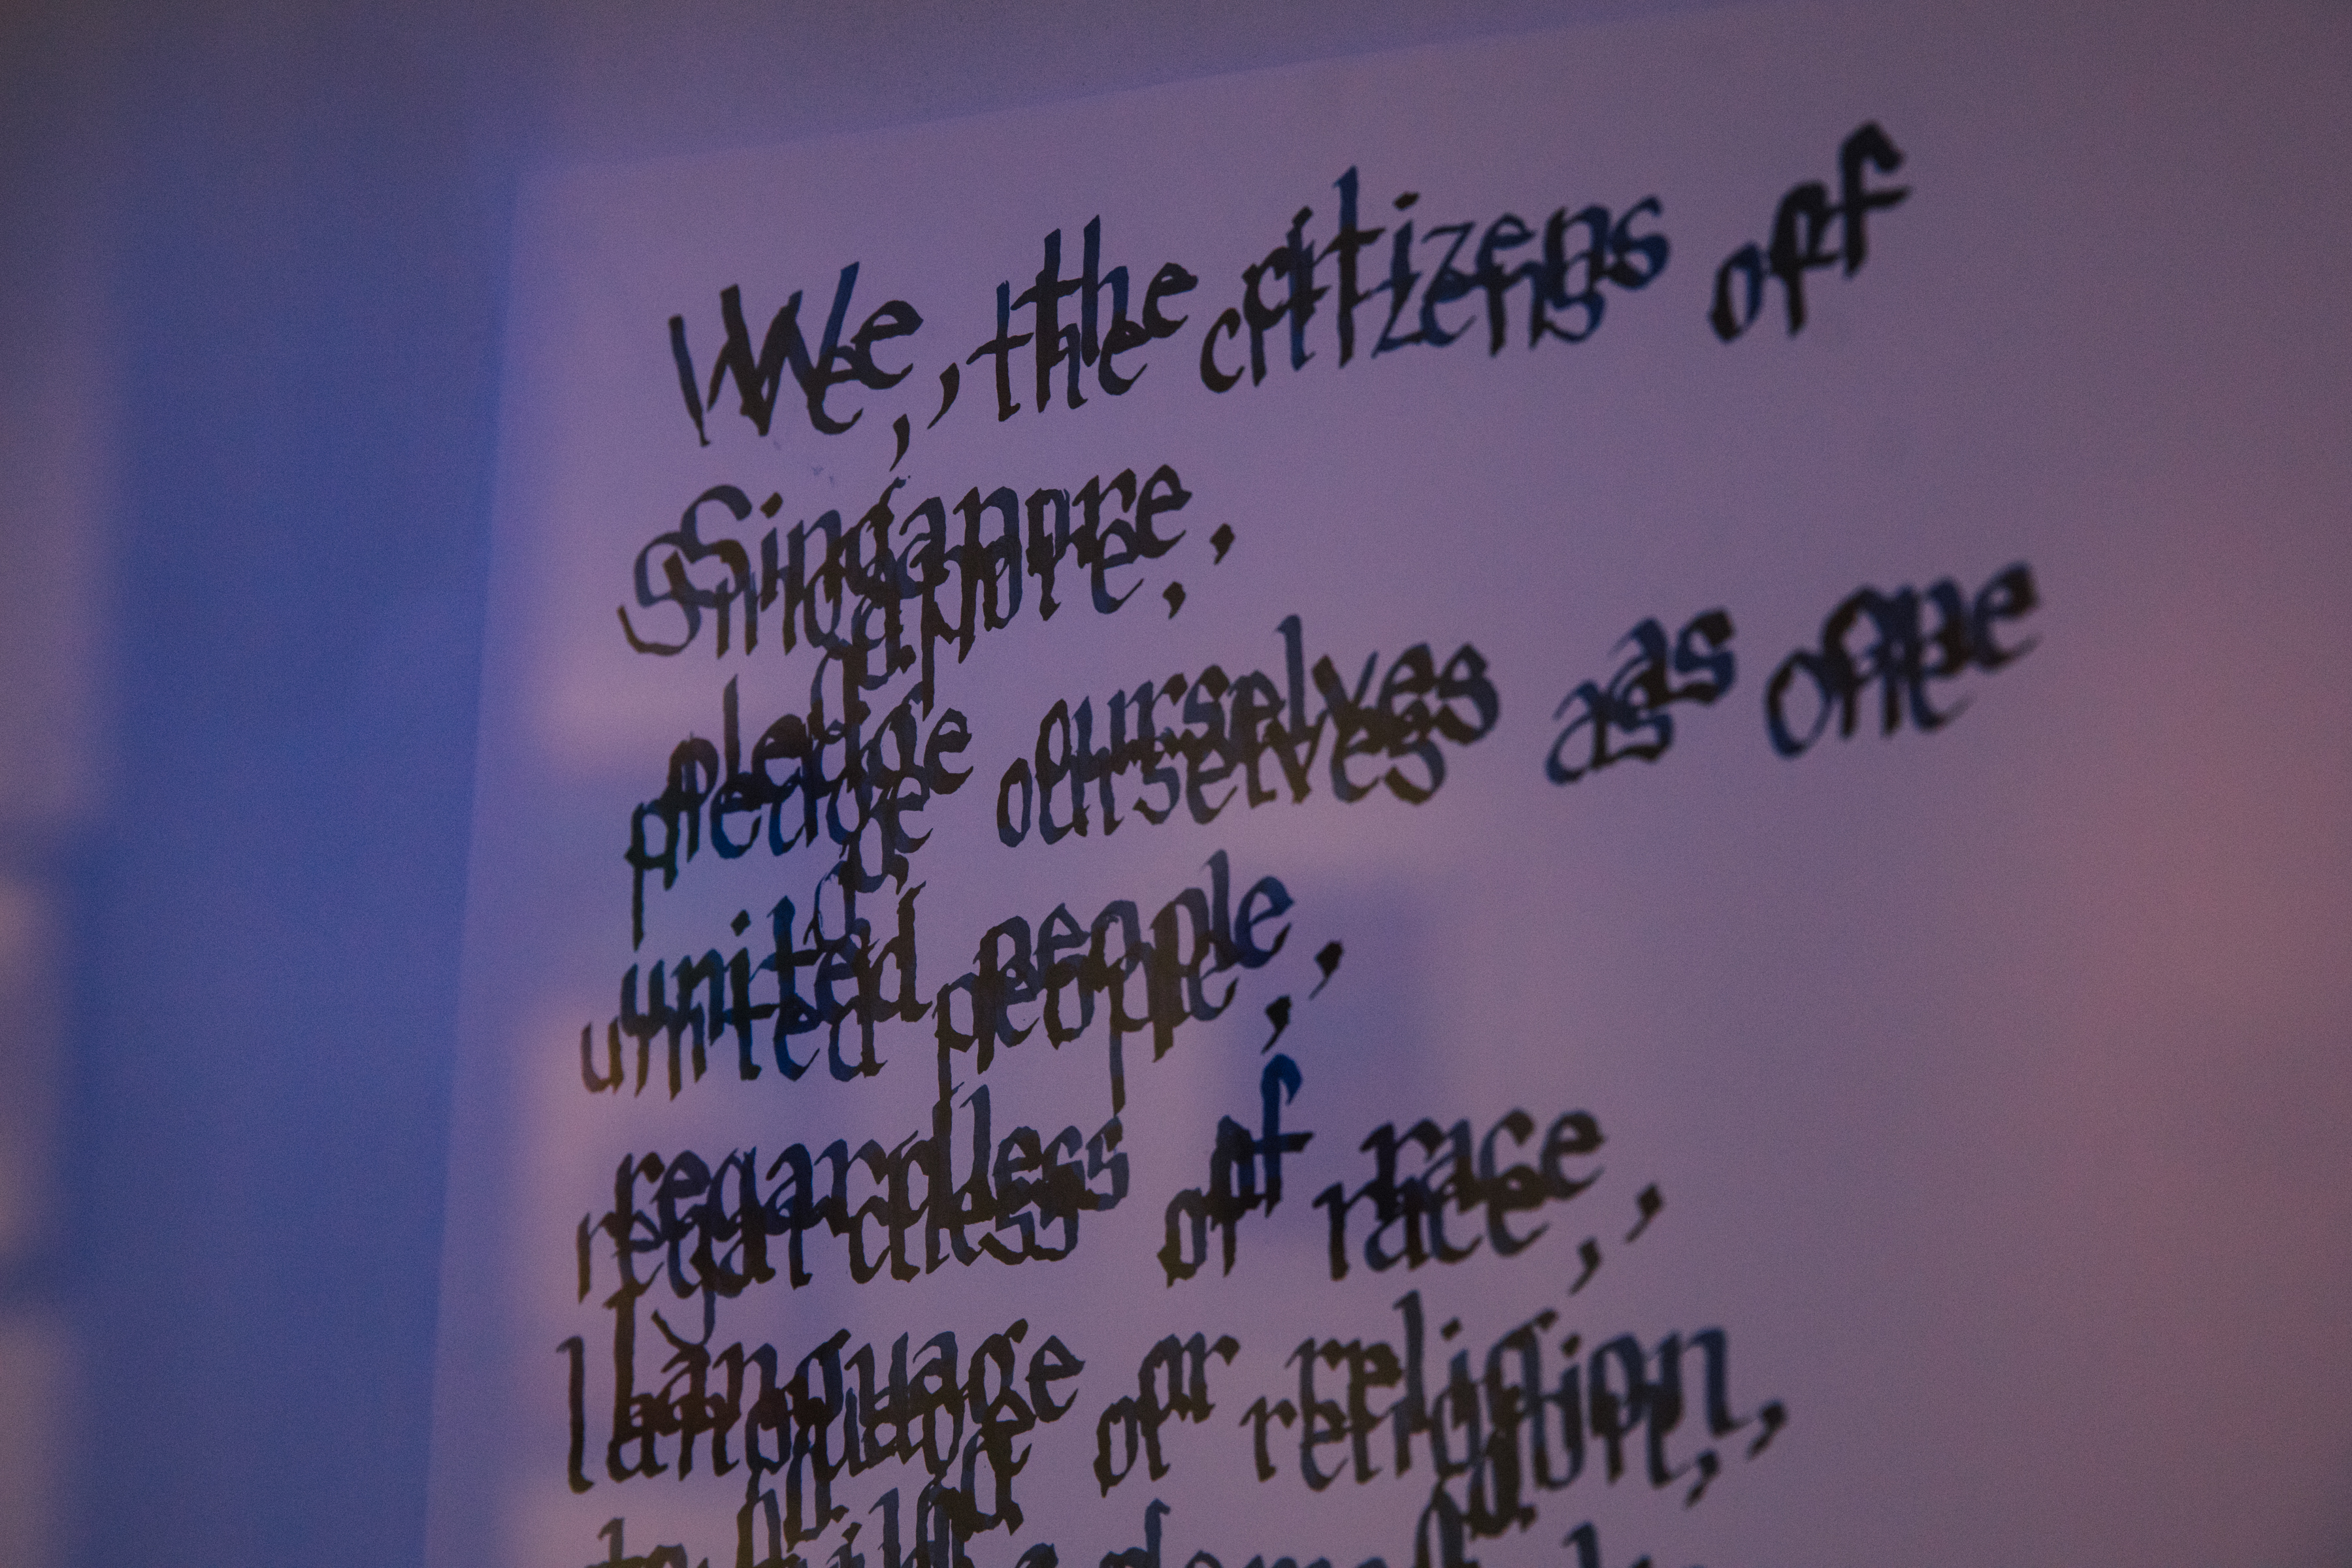 We, the citizens of
Singapore,
pledge ourselves as one
united people,
regardless of race,
language or religion,
to build a